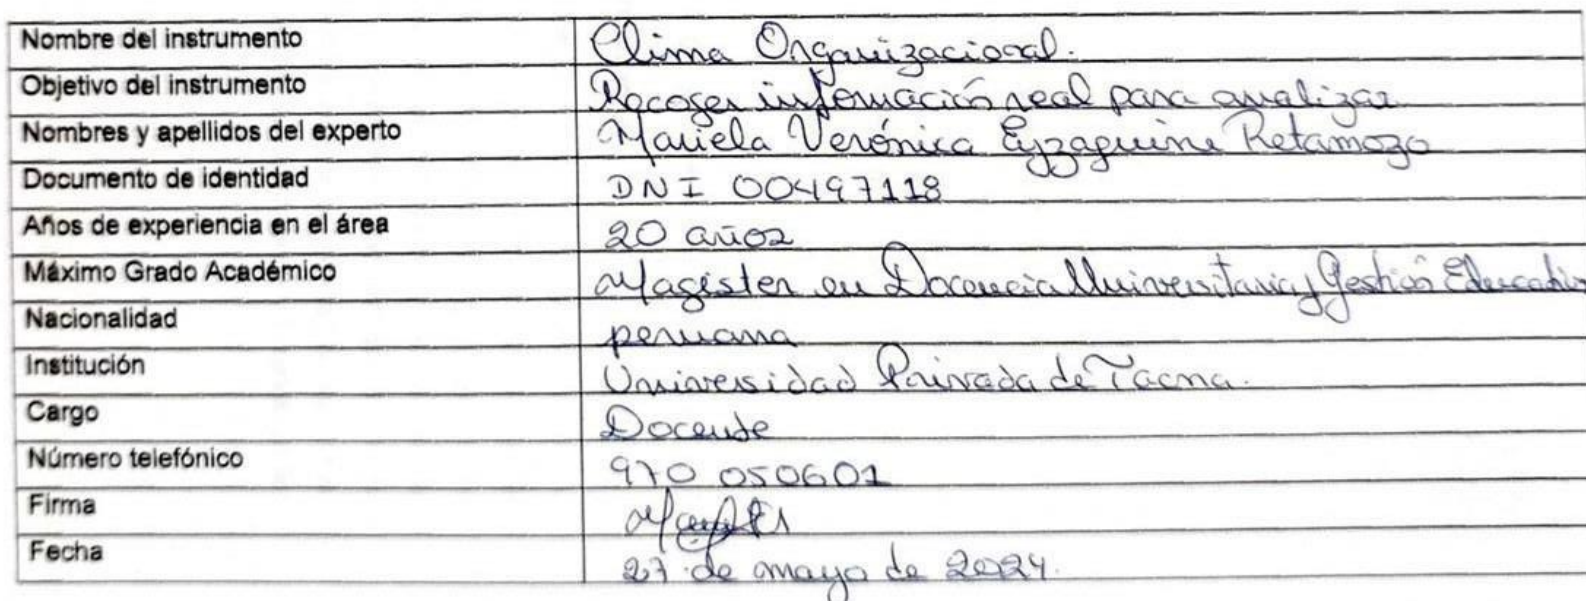 Nombre del instrumento Clima Organizacional.
Objetivo del instrumento Recoger información real para analizar
Nombres y apellidos del experto Mariela Verónica Eyzaguirre Retamozo
Documento de identidad DNI 00497118
Años de experiencia en el área 20 años
Máximo Grado Académico Magister en Docencia Universitaria y Gestión Educativa
Nacionalidad peruana
Institución Universidad Privada de Tacna.
Cargo Docente
Número telefónico 970 050601
Firma
Fecha 27 de mayo de 2024.